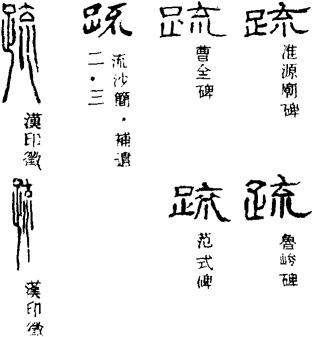 䟽
准源廟碑
䟽
曹全碑
䟽
流沙簡・補遺
二・三
䟽
漢印徵
䟽
魯峻碑
䟽
范式碑
漢印徵